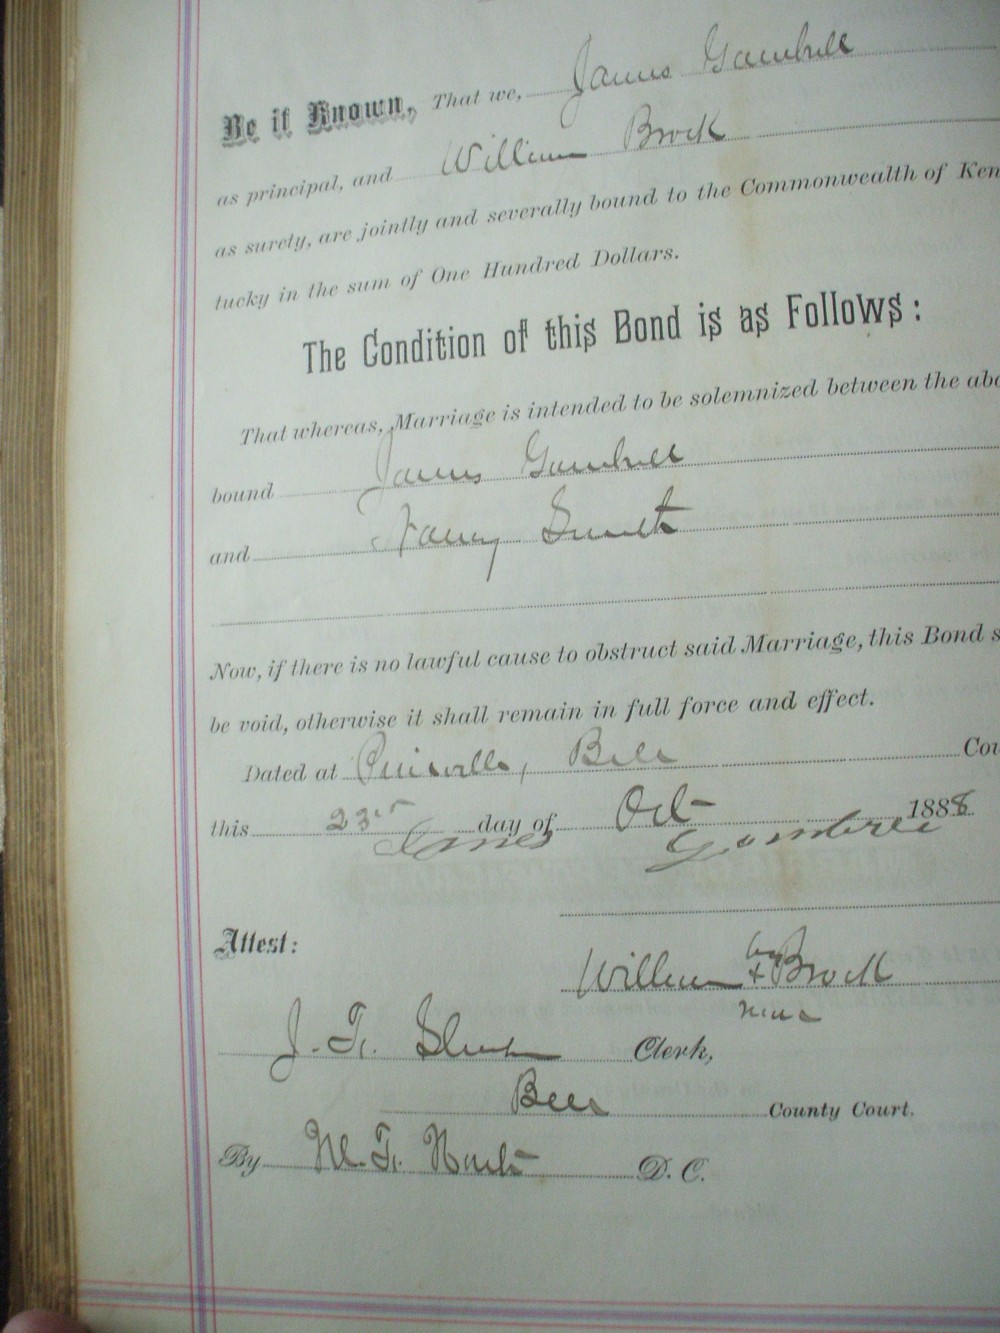 Be it Known, That we, James Gambrell
as principal, and William Brock
as surety, are jointly and severally bound to the Commonwealth of Ken
tucky in the sum of One Hundred Dollars.
The Condition of this Bond is as Follows:
That whereas, Marriage is intended to be solemnized between the abo
bound James Gambrell
and Nancy Smith
Now, if there is no lawful cause to obstruct said Marriage, this Bond s
be void, otherwise it shall remain in full force and effect.
Dated at Pineville, Bell Cou
this 23 day of Oct 1888
James Gambrell
Attest:
William his x Brock
J. F. Clerk,
Bell County Court.
By D. C.